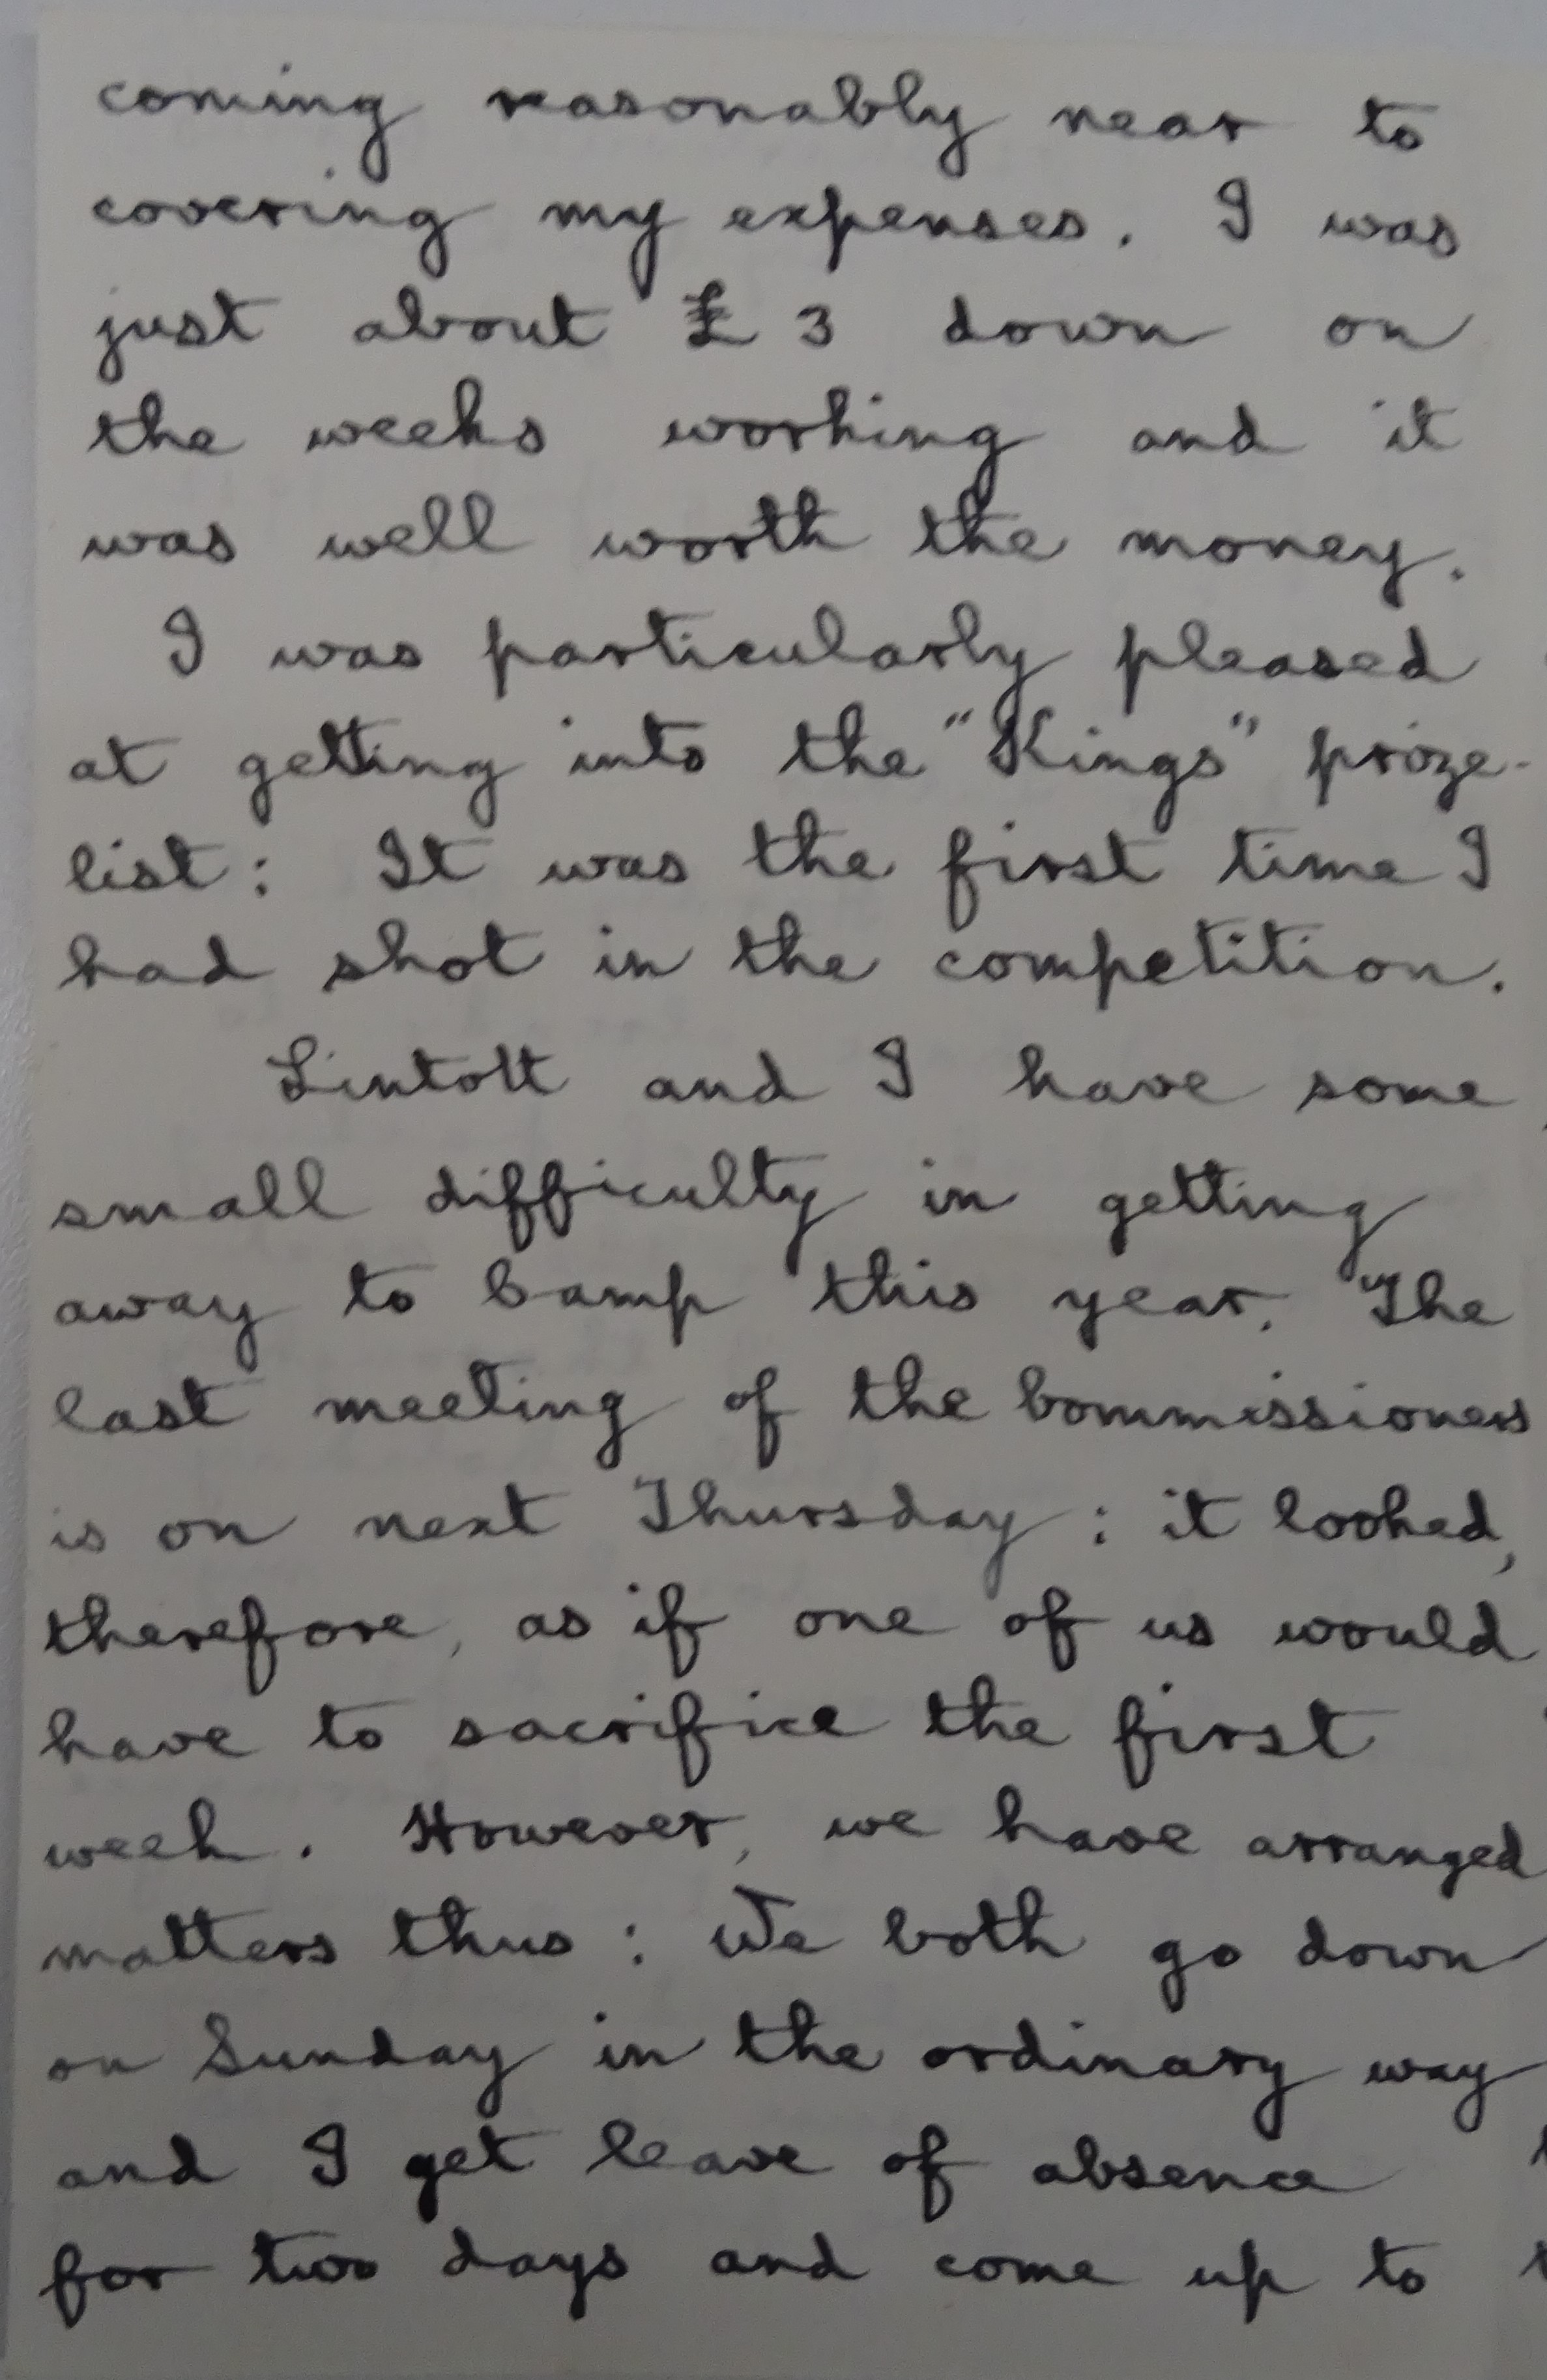 coming reasonably near to
covering my expenses. I was
just about £3 down on
the weeks working and it
was well worth the money.
I was particularly pleased
at getting into the "Kings" prize-
list: It was the first time I
had shot in the competition.
Lintott and I have some
small difficulty in getting
away to Camp this year. The
last meeting of the Commissioners
is on next Thursday: it looked,
therefore, as if one of us would
have to sacrifice the first
week. However, we have arranged
matters thus: We both go down
on Sunday in the ordinary way
and I get leave of absence
for two days and come up to